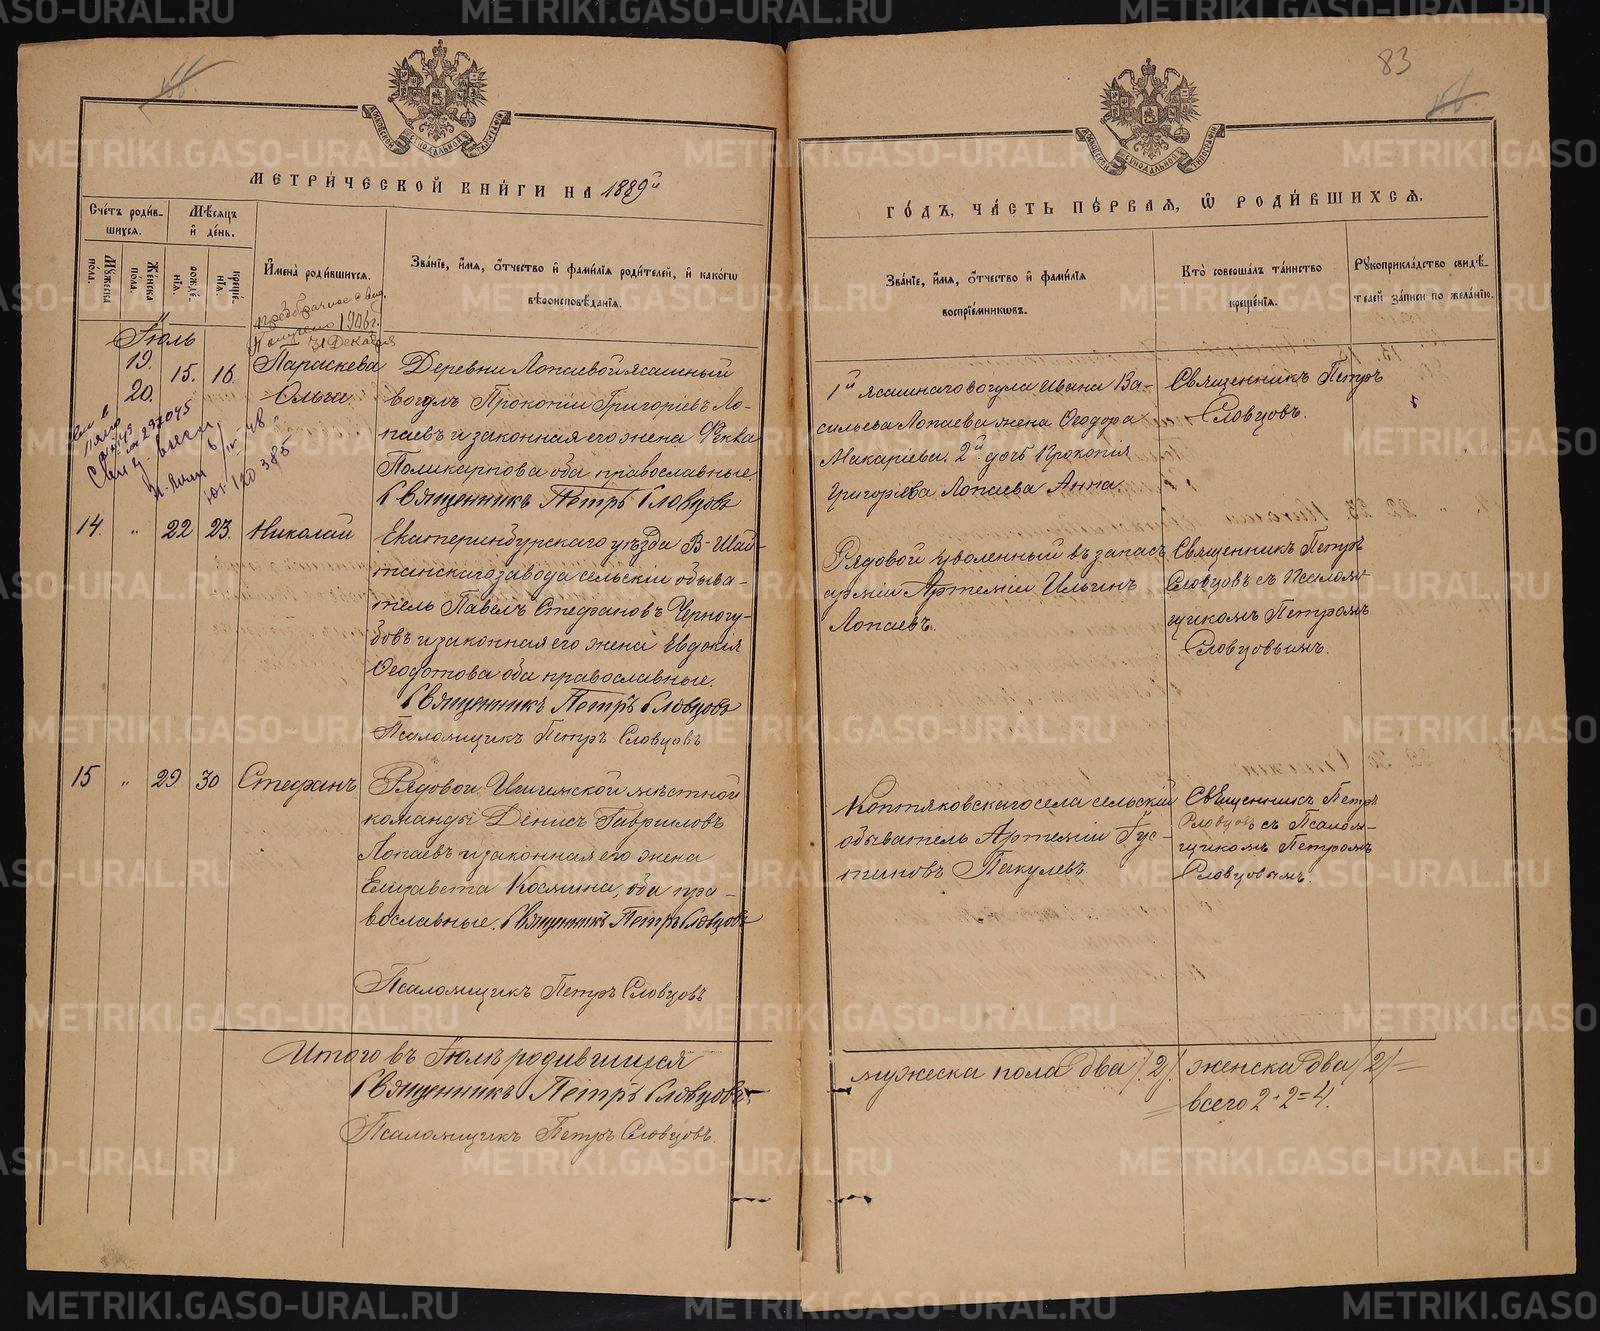 83
МЕТРИЧЕСКОЙ КНИГИ НА 1889й
ГОДЪ, ЧАСТЬ ПЕРВАЯ, Ѡ РОДИВШИХСЯ.
МОСКОВСКОЙ СѴНОДАЛЬНОЙ ТИПОГРАФІИ
МОСКОВСКОЙ СѴНОДАЛЬНОЙ ТИПОГРАФІИ
Счетъ родив-
шихся.
Мѣсяцъ
и день.
Мужеска
пола.
Женска
пола.
рожде-
нія.
креще-
нія.
Имена родившихся.
Званіе, имя, отчество и фамилія родителей, и какогѡ
вѣроисповѣданія.
Званіе, имя, отчество и фамилія
воспріемниковъ.
Кто совершалъ таинство
крещенія.
Рукоприкладство свидѣ-
телей записи по желанію.
1906 г.
31 Декабря
Іюль
19.
20.
15. 16.
Параскева
Ольга.
Деревни Лопаевой ясашный
вогулъ Прокопій Григоріевъ Ло-
паевъ и законная его жена Ѳекла
Поликарпова оба православные.
Священникъ Петръ Словцовъ
1й ясашнаго вогула Ивана Ва-
сильева Лопаева жена Ѳеодора
Макаріева. 2й дочь Прокопія
Григорьева Лопаева Анна.
Священникъ Петръ
Словцовъ.
237045
120385
14. " 22 23. Николай
Екатеринбурскаго уѣзда В-Шай-
танскаго завода сельскій обыва-
тель Павелъ Стефановъ Черногу-
бовъ и законная его жена Евдокія
Ѳеодотова оба православные.
Священникъ Петръ Словцовъ
Псаломщикъ Петръ Словцовъ
Рядовой уволенный въ запасъ
арміи Артемій Ильинъ
Лопаевъ.
Священникъ Петръ
Словцовъ съ Псалом-
щикомъ Петромъ
Словцовымъ.
15 " 29 30 Стефанъ
Рядовой Ишимской мѣстной
команды Денисъ Гавриловъ
Лопаевъ и законная его жена
Елизавета Космина, оба пра-
вославные. Священникъ Петръ Словцовъ
Псаломщикъ Петръ Словцовъ
Коптяковскаго села сельскій
обыватель Артемій Іус-
тиновъ Пакулевъ
Священникъ Петръ
Словцовъ съ Псалом-
щикомъ Петромъ
Словцовымъ.
Итого въ Іюлѣ родившихся
мужеска пола два /2/. женска два /2/=
всего 2+2=4.
Священникъ Петръ Словцовъ
Псаломщикъ Петръ Словцовъ.
METRIKI.GASO-URAL.RU